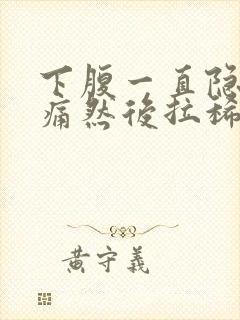 下腹一直隐
痛然後拉稀
黄守義